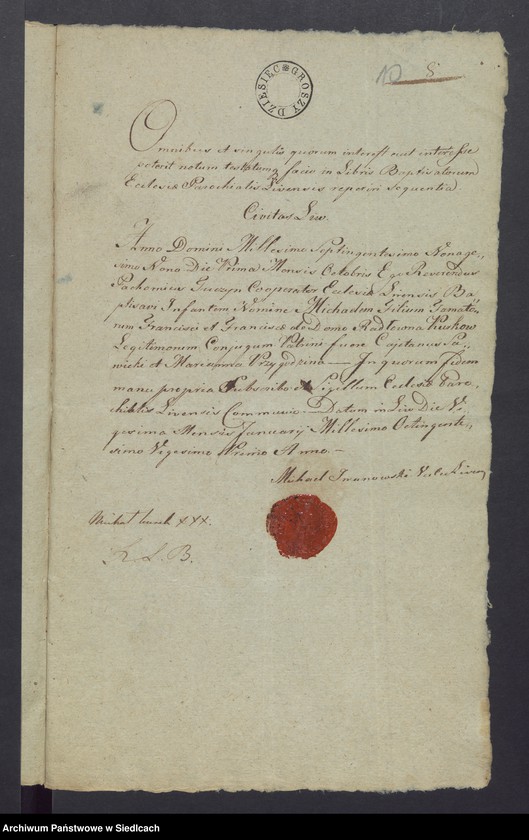 DZIESIĘC GROSZY
10 8
Omnibus et singulis quorum interest aut interesse
poterit notum testatumq facio in Libris Baptisatorum
Ecclesiæ Parochialis Livensis reperiri sequentia
Civitas Liw.
Anno Domini Millesimo Septingentesimo Nonage„
simo Nono Die Prima Mensis Octobris Ego Reverendus
Pachomius Cooperator Ecclesiæ Livensis Ba„
ptisavi Infantem Nomine Michaelem Filium Famato„
rum Francisci et Francisca de Domo Radtowna
Legitimorum Conjugum Patrini fuere Cajetanus Sa„
wicki et Marianna Przygodzina — In quorum Fidem
manu propria Subscribo et Sigillum Ecclesiæ Paro„
chialis Livensis Communio — Datum in Liw Die Vi„
gesima Mensis Januarij Millesimo Octingente„
simo Vigesimo Primo Anno. —
Michael Iwanowski
Michał XXX.
L. B.
Archiwum Państwowe w Siedlcach